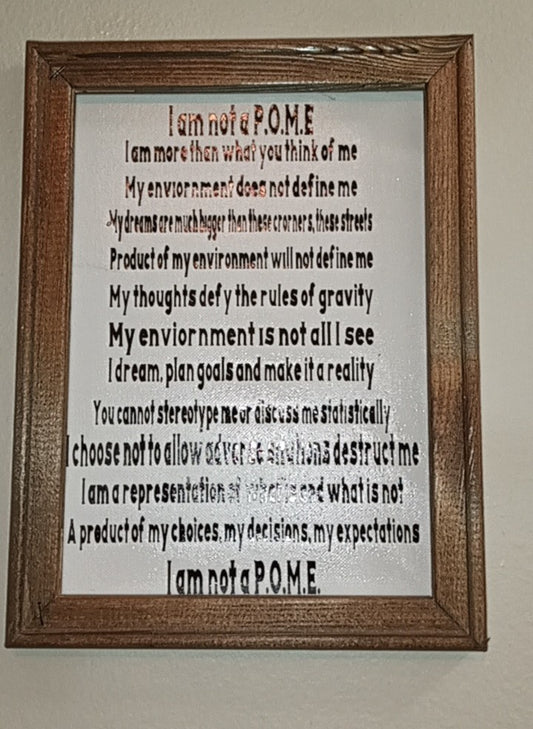 I am not a P.O.M.E
I am more than what you think of me
My enviornment does not define me
My dreams are much bigger than these crorners, these streets
Product of my environment will not define me
My thoughts defy the rules of gravity
My enviornment is not all I see
I dream, plan goals and make it a reality
You cannot stereotype me or discuss me statistically
I choose not to allow adverse destruct me
I am a representation of what is and what is not
A product of my choices, my decisions, my expectations
I am not a P.O.M.E.